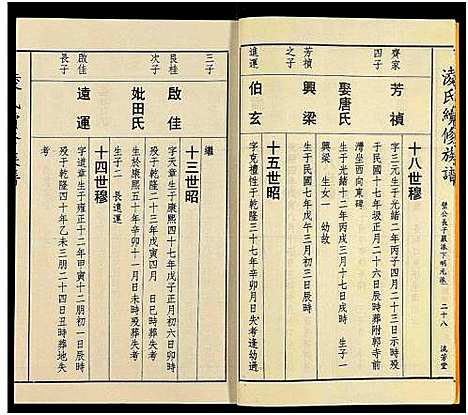 凌氏續修族譜
璧公長子嚴派下明元房
二十八
流芳堂
十八世穆
齊家
四子
芳楨
字三元生于光緒二年丙子四月二十三日示時殁
于民國十七年掀正月二十六日辰時葬附郭寺前
灣坐西向東碑
娶唐氏
生于光緒十二年丙戌三月十七日戌時 生子一
興梁 生女一 幼故
芳楨
之子
興梁
生于民國七年戊午四月初三日戌時
十五世昭
進運
伯玄
字克禮性于乾隆三十七年辛卯月日失考逢幼故
繼
十三世昭
三子
艮桂
次子
啟佳
字天章生于康熙四十七年戊子正月初六日卯時
殁于乾隆二十三年戊寅四月 日巳時葬失考
妣田氏
生于康熙五十年辛卯十一月日未時殁葬失考
生子二 長遠運
十四世穆
啟佳
長子
遠運
字道章生于雍正十二年甲寅十二月初一日辰時
殁于乾隆四十年乙未三朋二十四日丑時葬地失
考